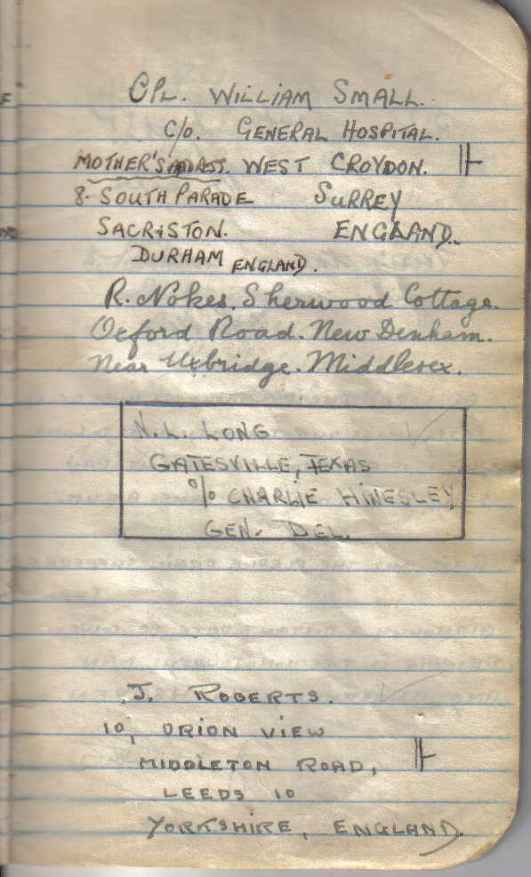 CPL. WILLIAM SMALL.
C/O. GENERAL HOSPITAL.
MOTHER'S ADDRESS. WEST CROYDON.
8. SOUTH PARADE SURREY
SACRISTON. ENGLAND.
DURHAM ENGLAND.
R. Nokes. Sherwood Cottage.
Oxford Road. New Denham.
Near Uxbridge. Middlesex.
N. L. LONG
GATESVILLE, TEXAS
% CHARLIE HINESLEY
GEN. DEL.
J. ROBERTS.
10, ORION VIEW
MIDDLETON ROAD,
LEEDS 10
YORKSHIRE, ENGLAND.